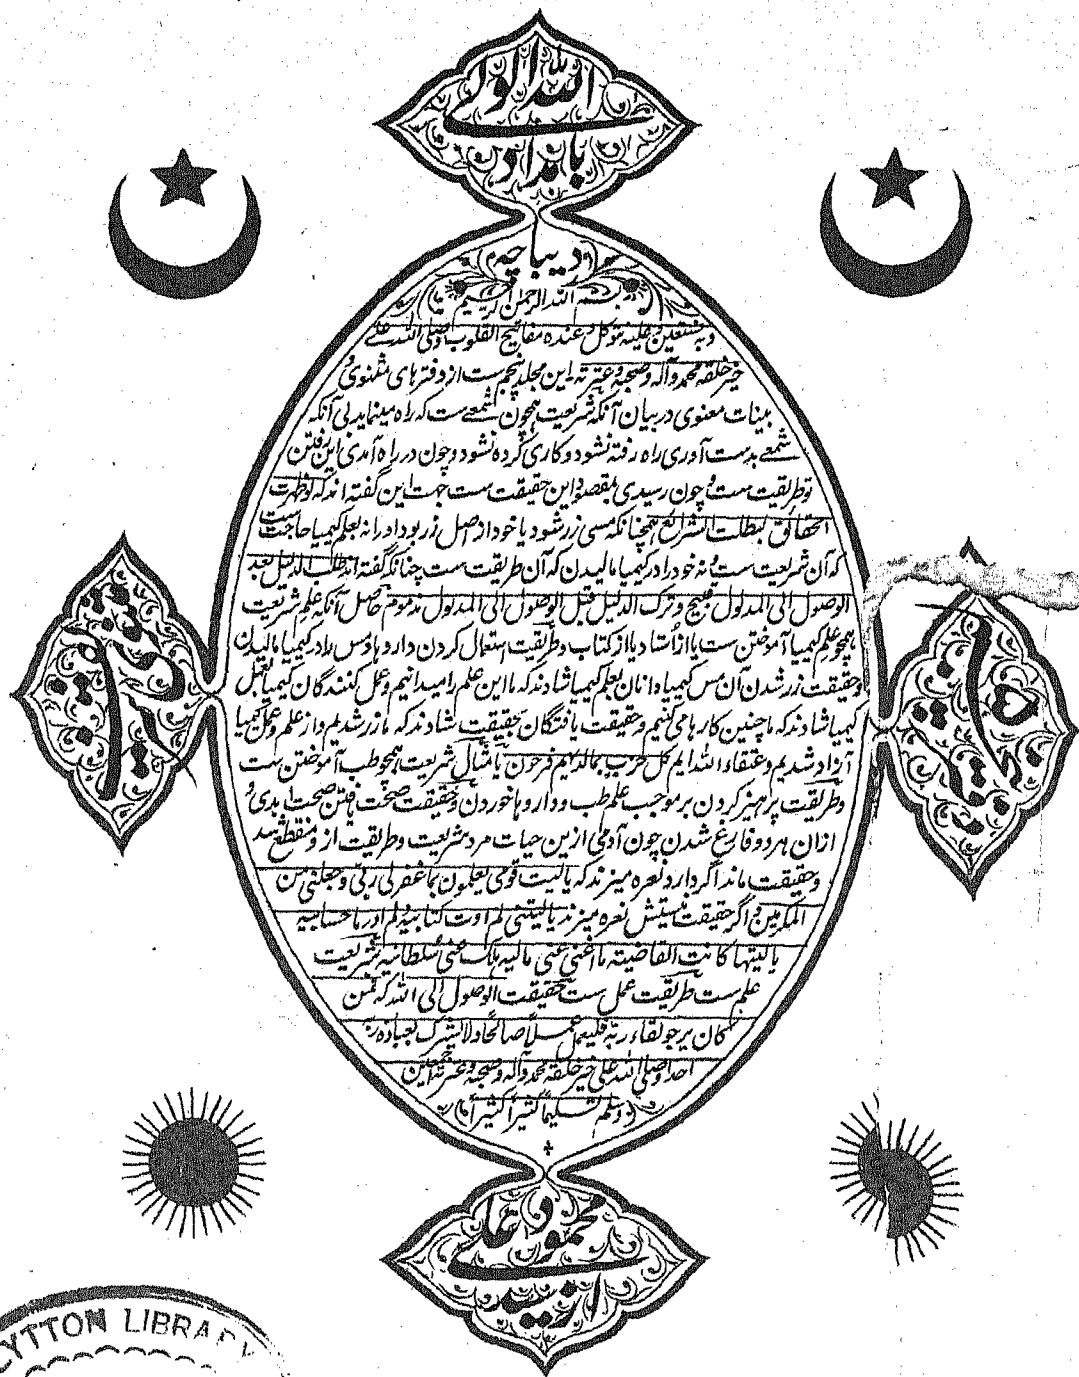 الله الولی
بامداد
دیباچه
بسم الله الرحمن الرحیم
وبه نستعین وعلیه نتوکل وعنده مفاتیح القلوب وصلی الله علی
خیر خلقه محمد وآله وصحبه وعترته این مجلد پنجم ست از دفترهای مثنوی و
بینات معنوی در بیان آنکه شریعت همچون شمعے ست که راه مینماید بی آنکه
شمعے بدست آوری راه رفته نشود وکاری کرده نشود وچون در راه آمدی این رفتن
تو طریقت ست وچون رسیدی بمقصود این حقیقت ست جهت این گفته اند که لو ظهرت
الحقائق لبطلت الشرائع همچنانکه مسی زر شود یا خود از اصل زر بود او را نه بعلم کیمیا حاجت است
که آن شریعت ست ونه خود را در کیمیا مالیدن که آن طریقت ست چنانکه گفته اند طلب الدلیل بعد
الوصول الی المدلول قبیح وترک الدلیل قبل الوصول الی المدلول مذموم حاصل آنکه علم شریعت
همچو علم کیمیا آموختن ست یا از استاد یا از کتاب وطریقت استعمال کردن داروها ومس را در کیمیا مالیدن
وحقیقت زر شدن آن مس کیمیا دانان بعلم کیمیا شادند که ما این علم را میدانیم وعمل کنندگان کیمیا بعمل
کیمیا شادند که ما چنین کارها می کنیم وحقیقت یافتگان بحقیقت شادند که ما زر شدیم واز علم وعمل کیمیا
آزاد شدیم وعتقاء الله ایم کل حزب بمالدیهم فرحون یا مثال شریعت همچو طب آموختن ست
وطریقت پرهیز کردن بر موجب علم طب وداروها خوردن وحقیقت صحت یافتن صحت ابدی و
ازان هر دو فارغ شدن چون آدمی ازین حیات مرد شریعت وطریقت از و منقطع شد
وحقیقت ماند اگر دارد نعره میزند که یالیت قومی یعلمون بما غفرلی ربی وجعلنی من
المکرمین واگر حقیقت نیستش نعره میزند یالیتنی لم اوت کتابیه ولم ادر ما حسابیه
یالیتها کانت القاضیة ما اغنی عنی مالیه هلک عنی سلطانیه شریعت
علم ست طریقت عمل ست حقیقت الوصول الی الله که فمن
کان یرجو لقاء ربه فلیعمل عملاً صالحاً ولا یشرک بعبادة ربه
احداً وصلی الله علی خیر خلقه محمد وآله وصحبه وعترته اجمعین
وسلم تسلیماً کثیراً کثیراً
LYTTON LIBRARY